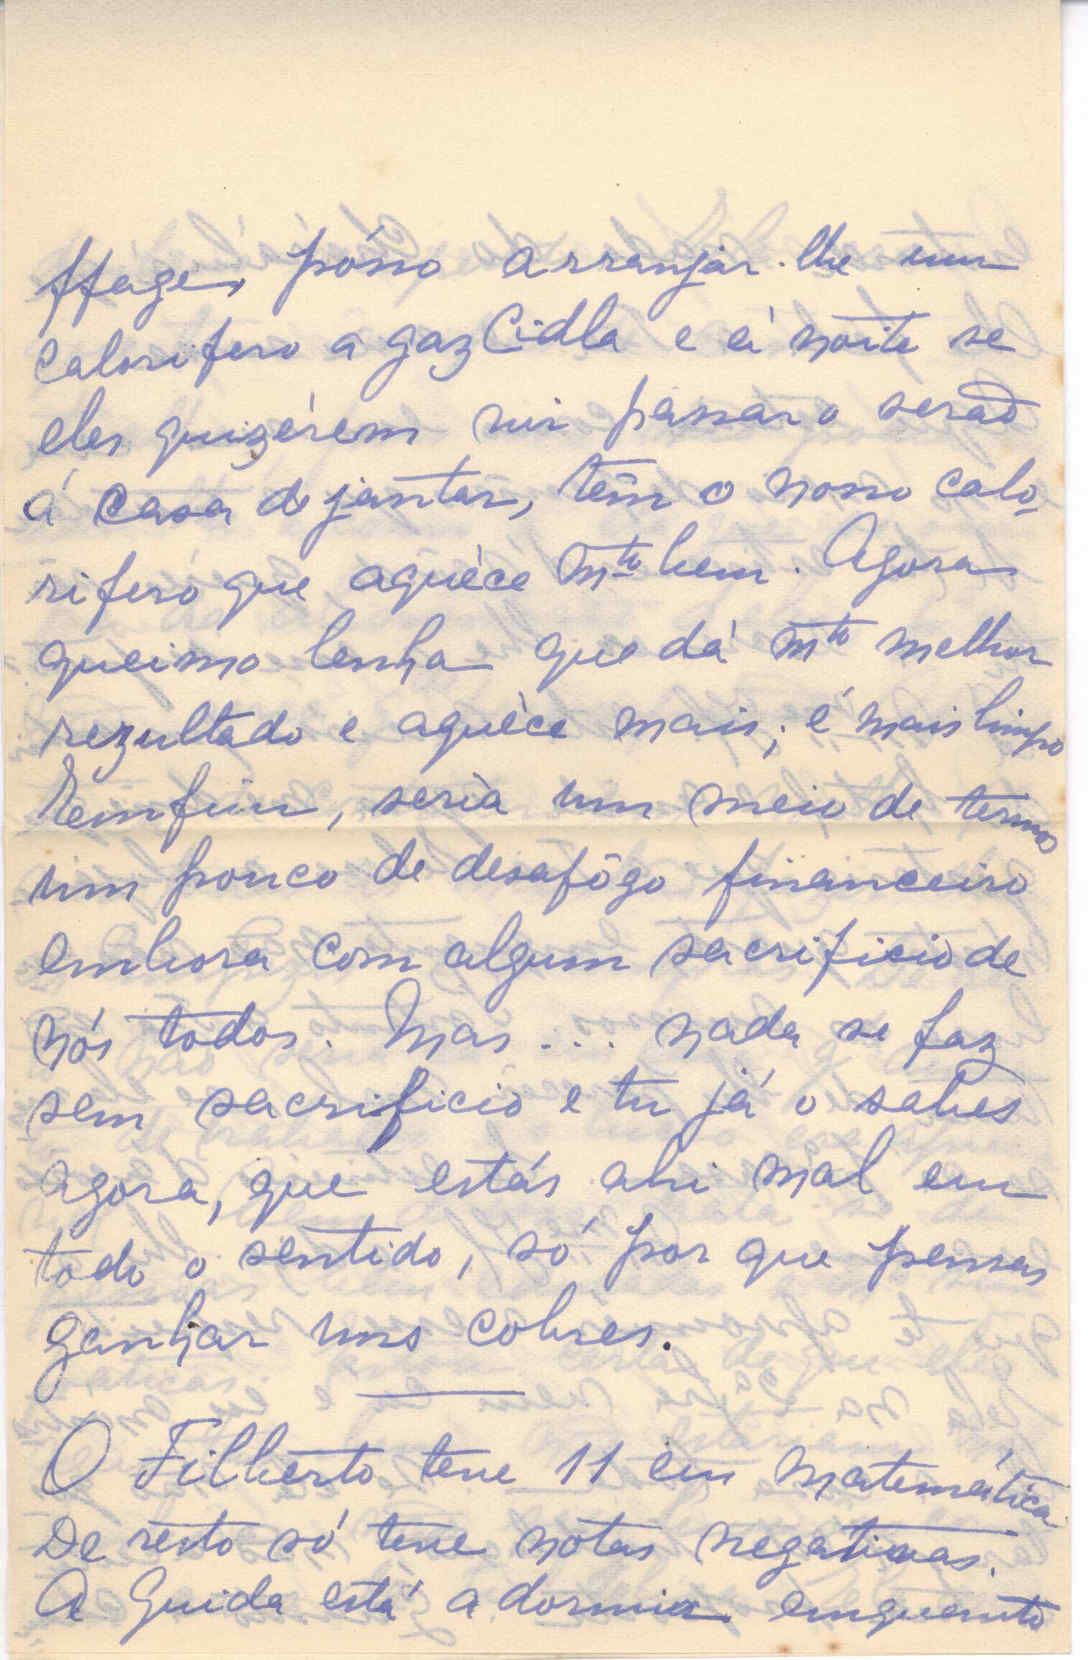 ffage, pósso arranjar-lhe um
calorifero a gaz Cidla e á noite se
eles quizérem vir passar o seraõ
á casa de jantar, têm o nosso calo-
rifero que aquéce mto bem. Agora
queimo lenha que dá mto melhor
rezultado e aquéce mais; é mais limpo
Emfim, seria um meio de termos
um pouco de desafôgo financeiro
embora com algum sacrificio de
nós todos. Mas ... nada se faz
sem sacrificio e tu já o sabes
agora, que estás ahi mal em
todo o sentido, só por que pensas
ganhar uns cobres.
O Filberto teve 11 em matemática.
De resto só teve notas negativas.
A Guida está a dormir emquanto